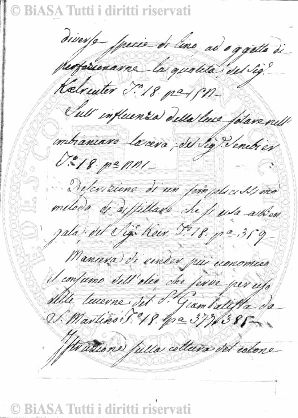 © BiASA Tutti i diritti riservati
diverse specie di lino, ad oggetto di
perfezionarne la qualità del Sig.
Kalreuter T. 18. pa
Sull' influenza della luce solare nell'
imbiancare la cera, del Sig. Senebier
T. 18. pa
Descrizione di un semplicissimo
metodo di distillare che si usa al Ben
gala; del Sig. Keir T. 18. pa. 359
Maniera di render più economico
il consumo dell'oleo che serve per uso
delle lucerne del S. Gambaliffa da
S. Martino T. 18. pa. 377. 385
Istruzione sulla coltura del cotone
© BiASA Tutti i diritti riservati